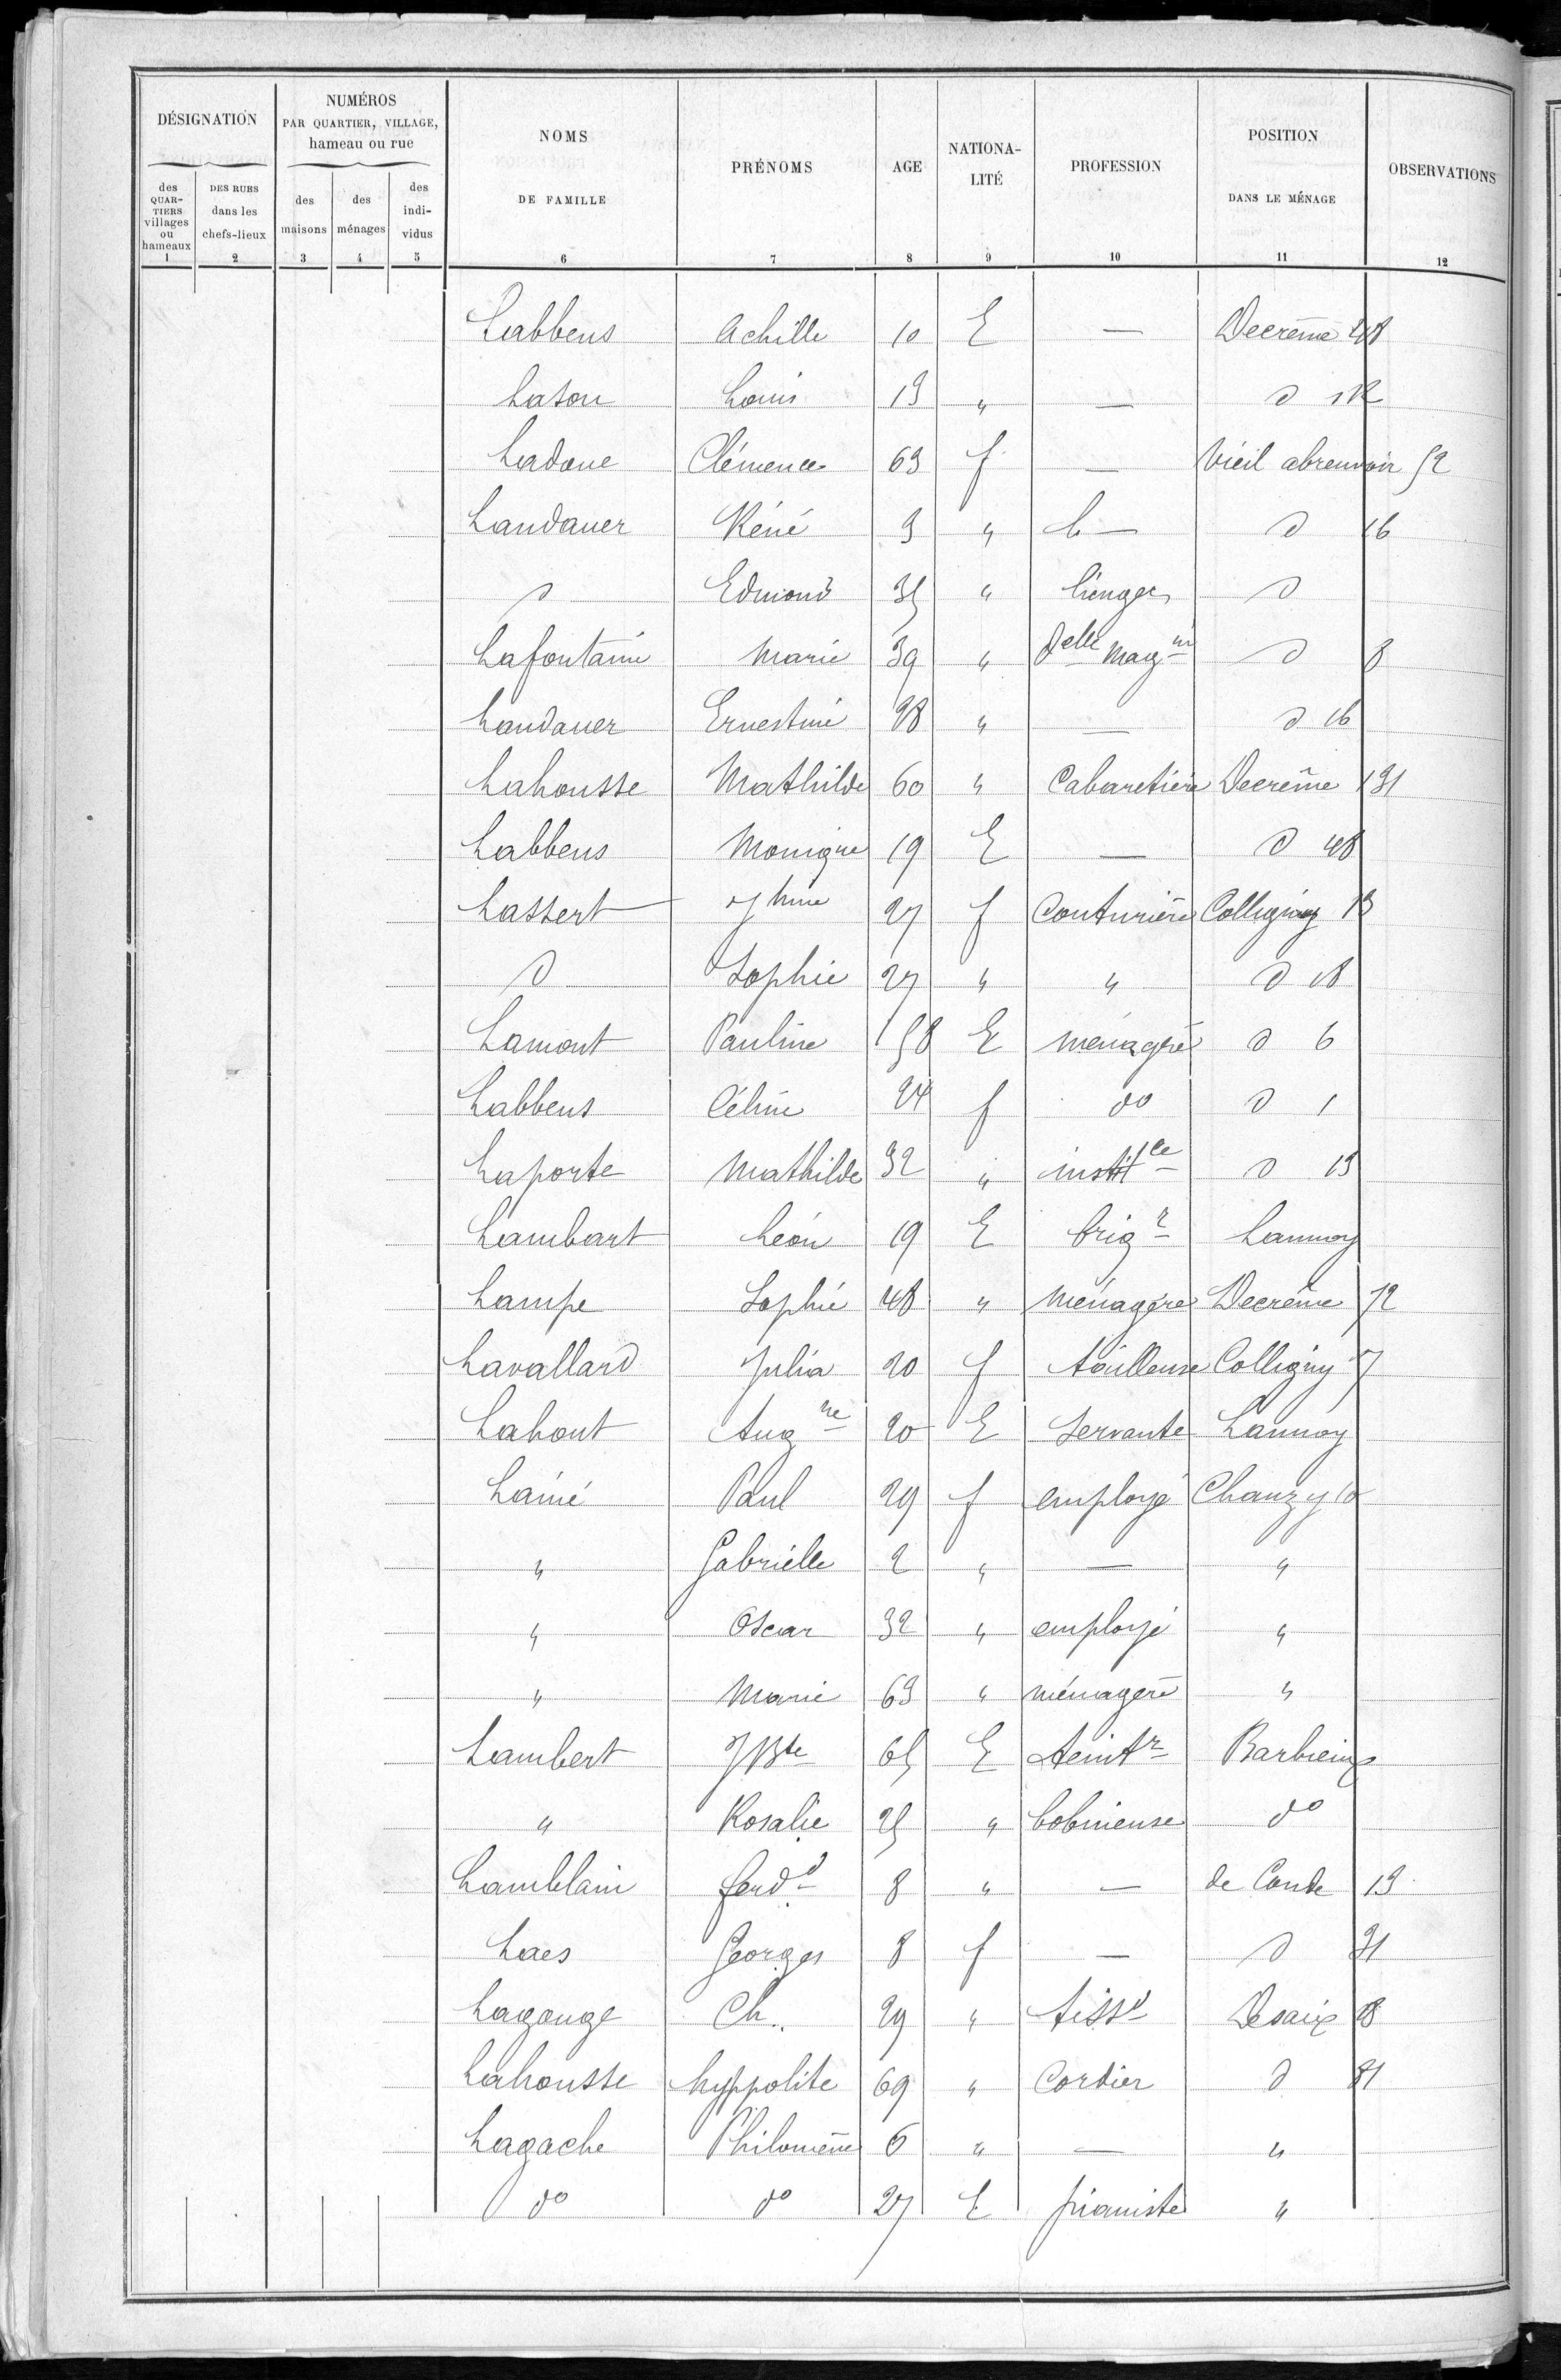 DÉSIGNATION
NUMÉROS
PAR QUARTIER, VILLAGE,
hameau ou rue
NOMS
DE FAMILLE
PRÉNOMS
AGE
NATIONA-
LITÉ
PROFESSION
POSITION
DANS LE MÉNAGE
OBSERVATIONS
des
QUAR-
TIERS
villages
ou
hameaux
DES RUES
dans les
chefs-lieux
des
maisons
des
ménages
des
indi-
vidus
1 2 3 4 5 6 7 8 9 10 11 12
Labbens Achille 10 E — Decrême 48
Lason Louis 13 " — d
Ladoue Clémence 63 f — Vieil abreuvoir 52
Landauer Réné 3 " — d 16
d Edmond 35 " d
Lafontaine Marie 39 " delle magin d 8
Landauer Ernestine 28 " — d 16
Lahousse Mathilde 60 " Cabaretière Decrême 131
Labbens Monique 19 E — d 48
Lassert 27 f Couturière Colligny 13
d Sophie 27 " " d 18
Lamont Pauline 58 E ménagère d 6
Labbens Céline 24 f do d 1
Laporte Mathilde 32 " institce d 13
Lambart Léon 19 E brigr Lannoy
Lampe Sophie 48 " Ménagère Decrême 72
Lavallard Julia 20 f tailleuse Colligny 7
Lahout Augne 20 E Servante Lannoy
Lainé Paul 29 f employé Chanzy 10
" Gabrielle 2 " — "
" Oscar 32 " employé "
" Marie 63 " ménagère "
Lambert JBte 65 E teintr Barbieux
" Rosalie 25 " bobineuse do
Lamblain ferdd 8 " — de Condé 13
Laes Georges 8 f — d 31
Lagouge Ch. 29 " tissd Desaix 8
Lahousse hyppolite 69 " Cordier d 81
Lagache Philomène 6 " — "
do do 27 E pianiste "